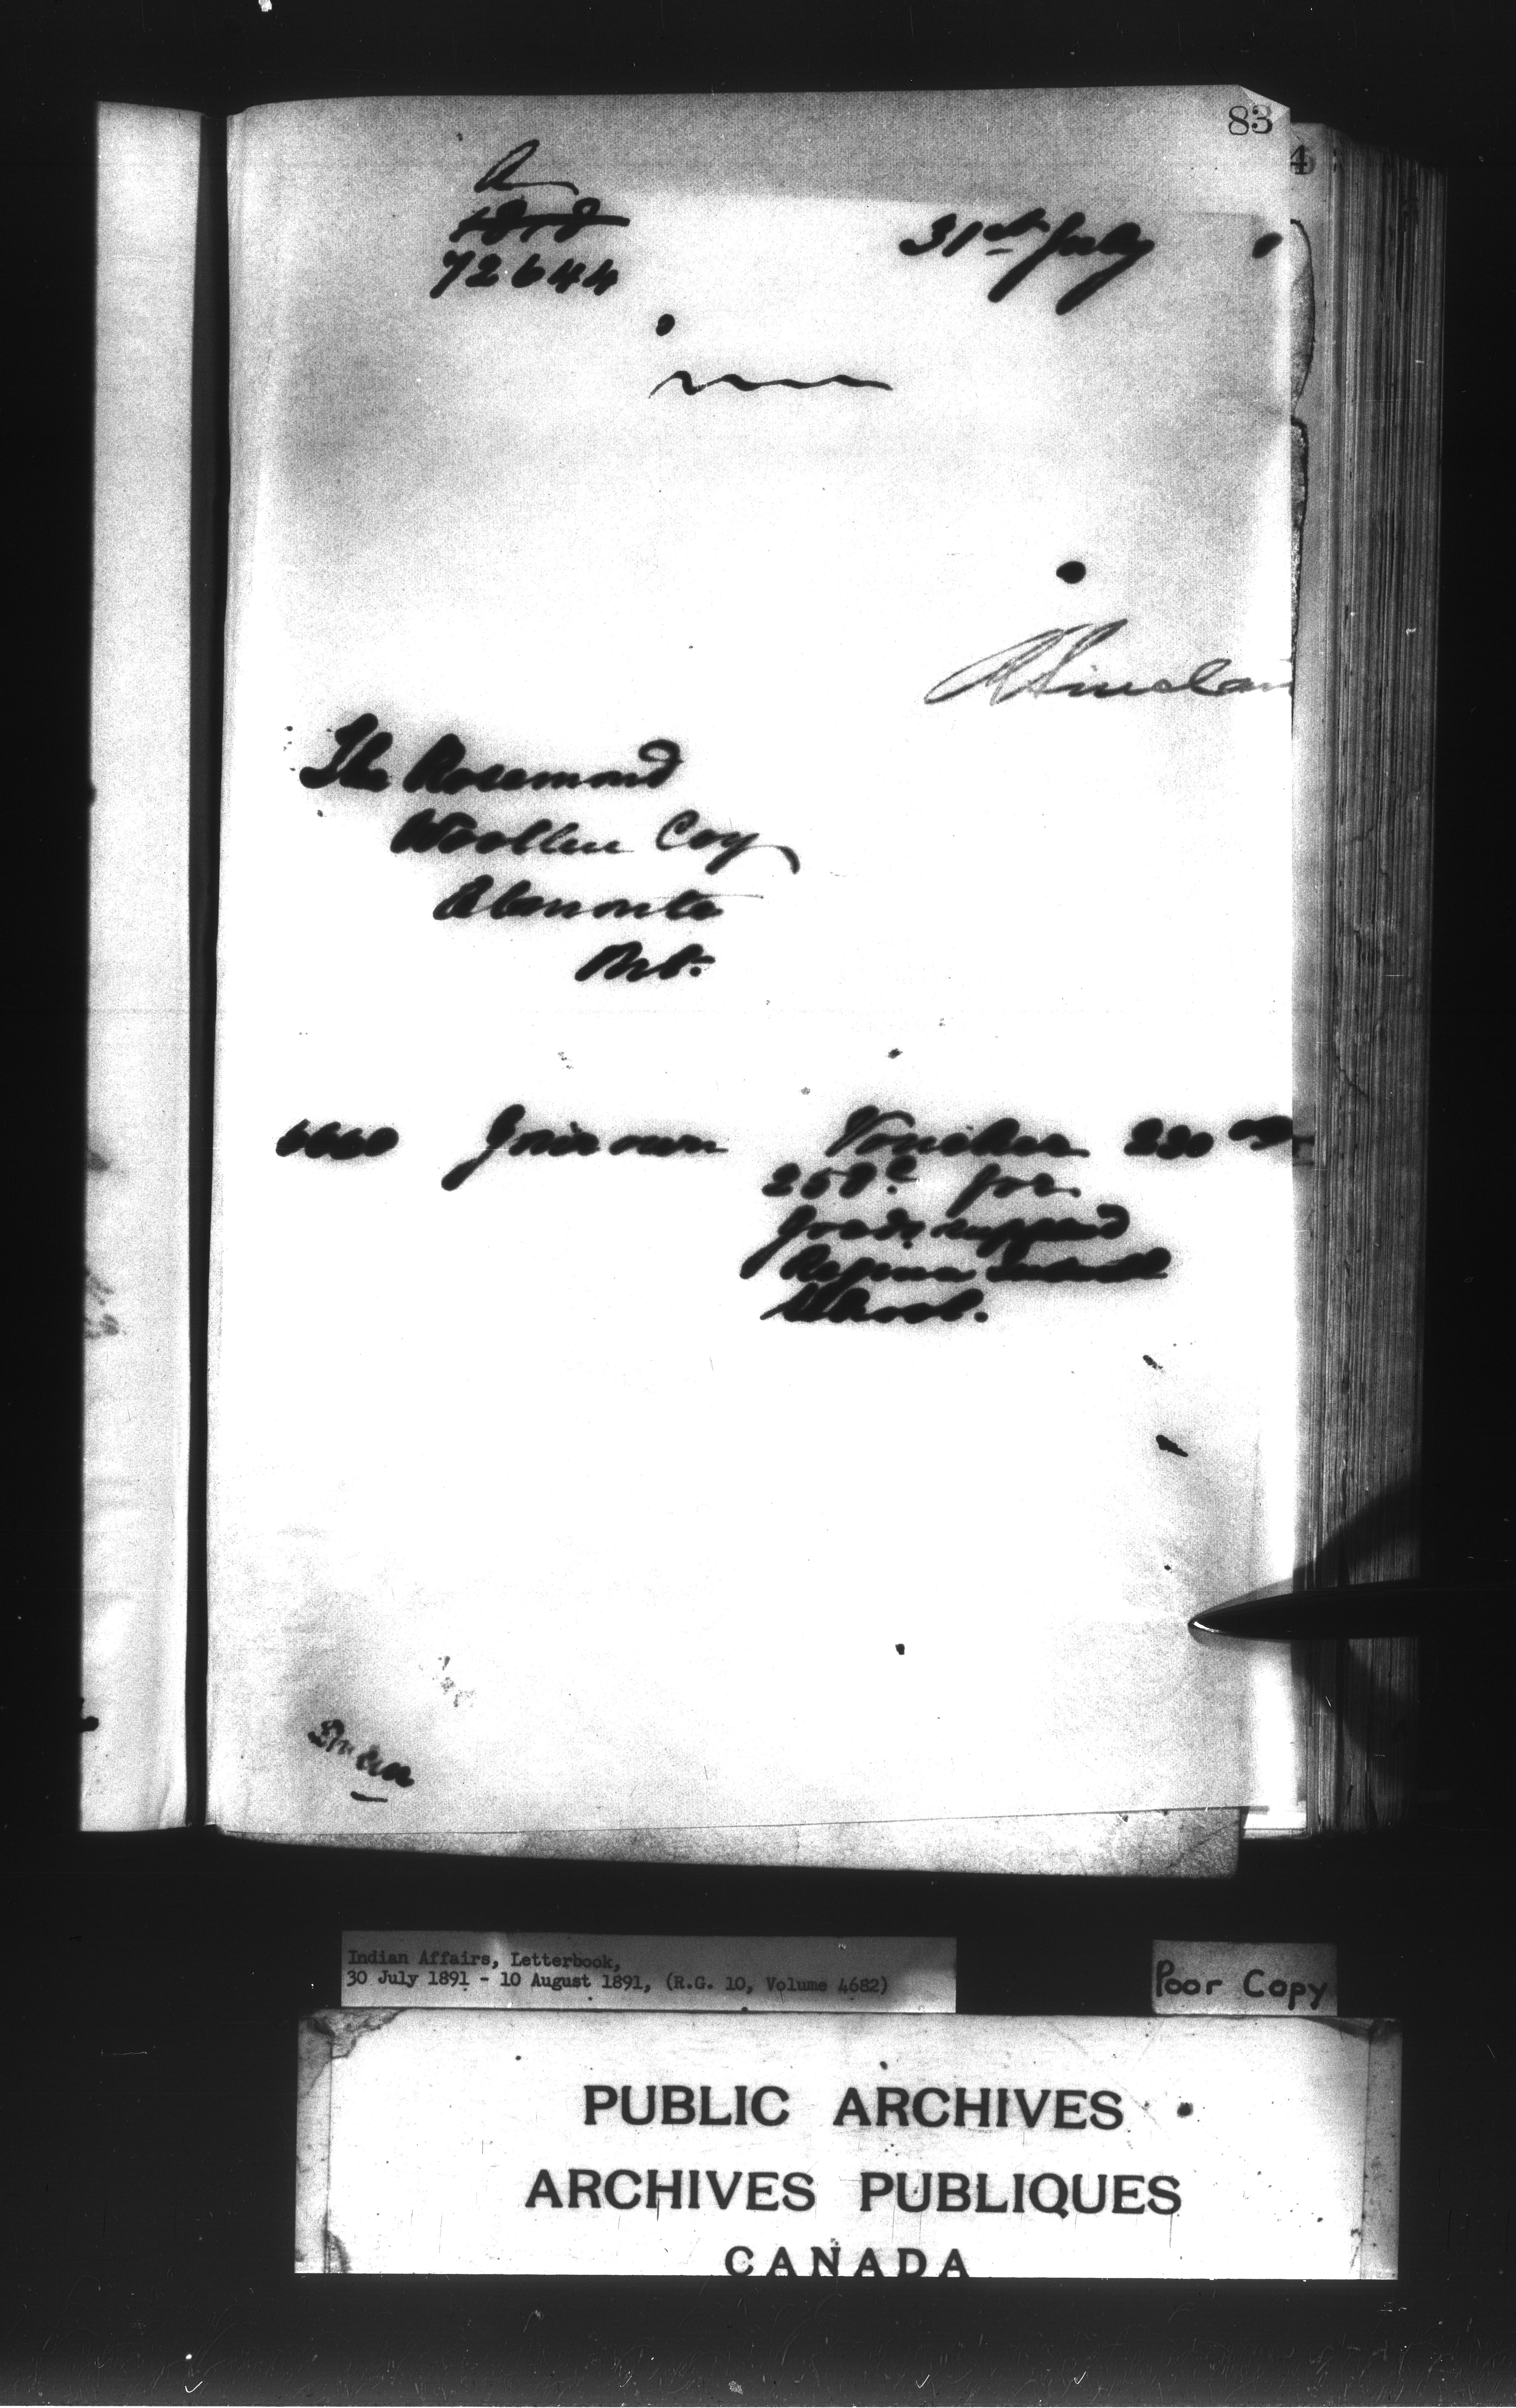 83
4
A
1818
72644
31st July
1
R Sinclair
The Rosamond
Woollen Coy
Almonte
Ont.
6660 Your own Voucher 230
250 for
goods supplied
Regina Industl
School.
Indian Affairs, Letterbook,
30 July 1891 - 10 August 1891, (R.G. 10, Volume 4682)
Poor Copy
PUBLIC ARCHIVES
ARCHIVES PUBLIQUES
CANADA